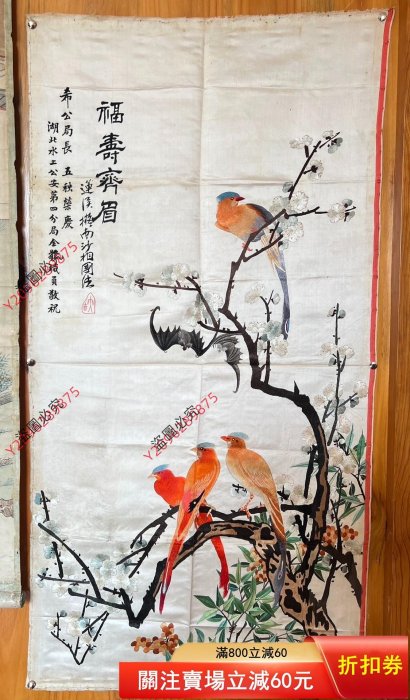 福壽齊眉
蓮溪橅南沙相國法
希公局長 五秩榮慶
湖北水上公安第四分局全體職員敬祝
盜圖必究
盜圖必究
盜圖必究
盜圖必究
滿800立減60
關注賣場立減60元
折扣券